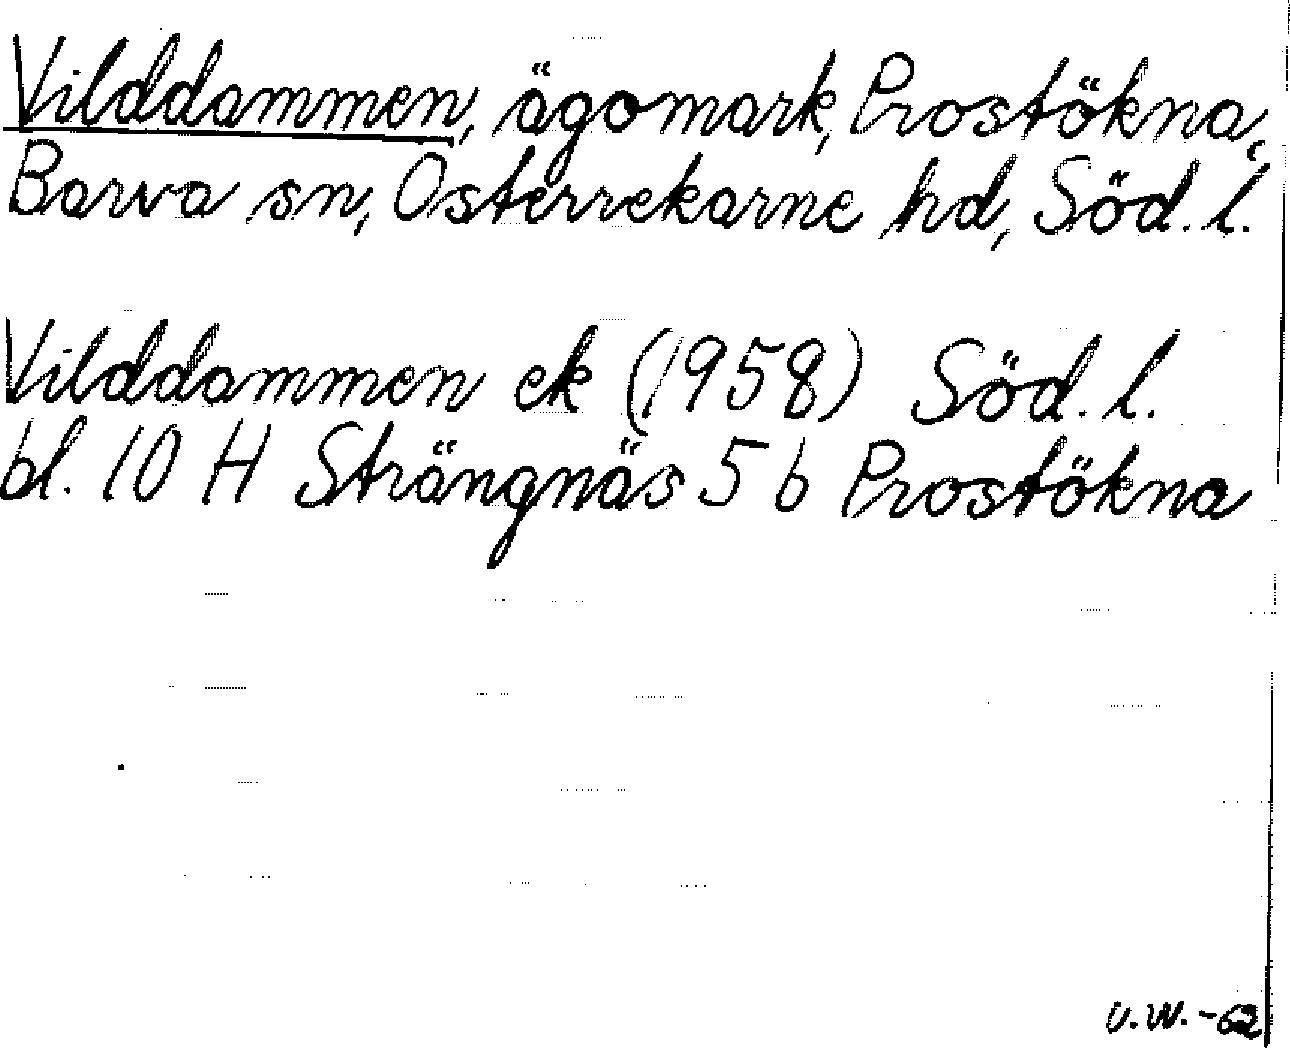 Vilddammen, ägomark, Prostökna,
Barva sn, Österrekarne hd, Söd. l.
Vilddammen ek (1958) Söd. l.
bl. 10 H Strängnäs 5 b Prostökna
U.W. -62